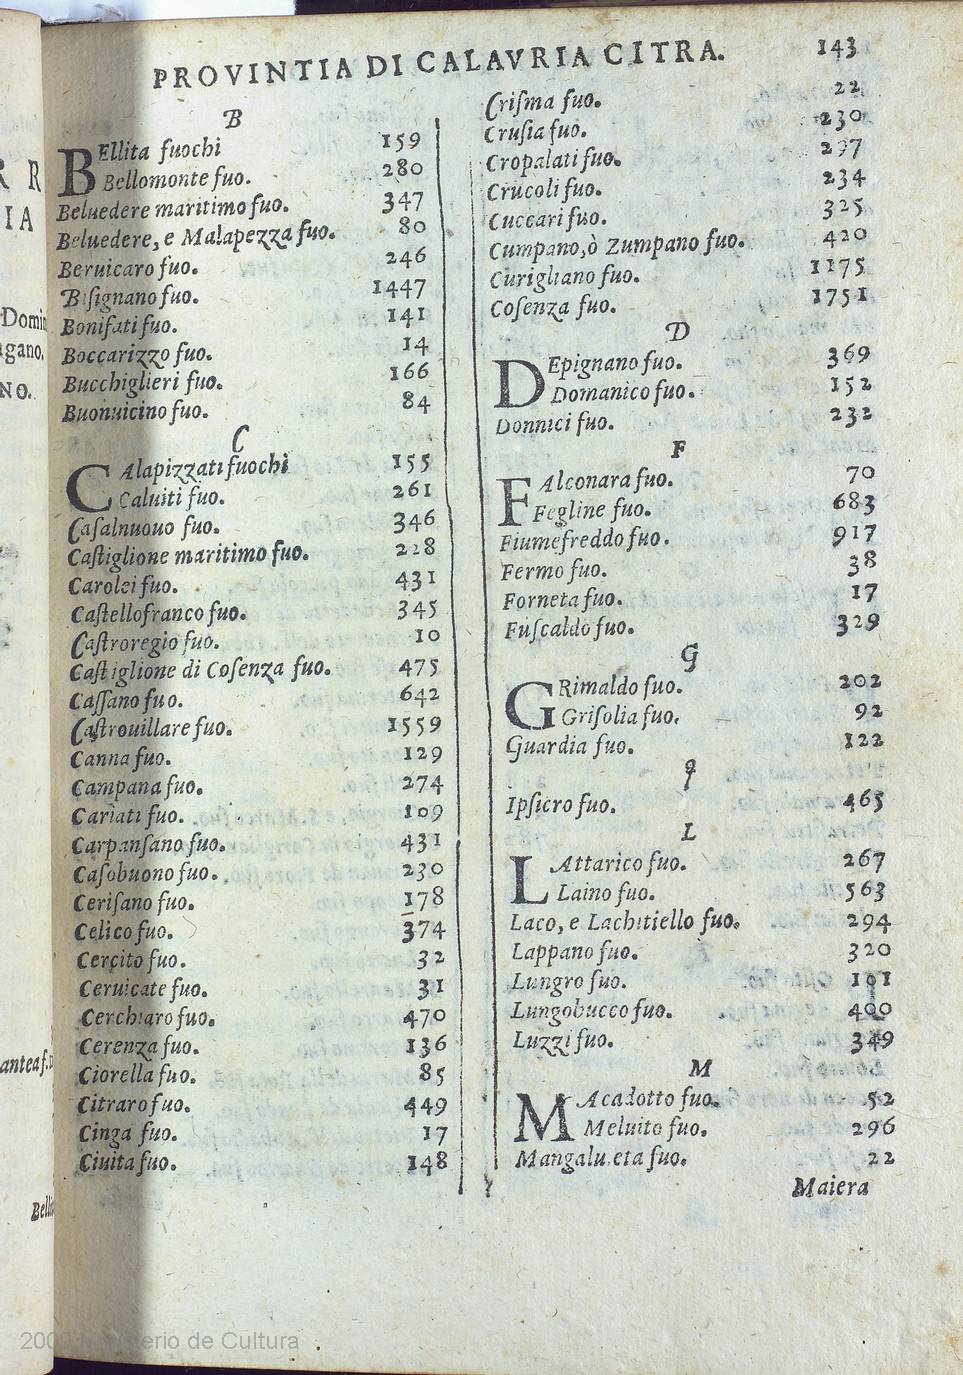 PROVINTIA DI CALAVRIA CITRA. 143
B
BEllita fuochi 159
Bellomonte fuo. 280
Beluedere maritimo fuo. 347
Beluedere, e Malapezza fuo. 80
Beruicaro fuo. 246
Bisignano fuo. 1447
Bonifati fuo. 141
Boccarizzo fuo. 14
Bucchiglieri fuo. 166
Buonuicino fuo. 84
C
CAlapizzati fuochi 155
Caluiti fuo. 261
Casalnuouo fuo. 346
Castiglione maritimo fuo. 228
Carolei fuo. 431
Castellofranco fuo. 345
Castroregio fuo. 10
Castiglione di Cosenza fuo. 475
Cassano fuo. 642
Castrouillare fuo. 1559
Canna fuo. 129
Campana fuo. 274
Cariati fuo. 109
Carpansano fuo. 431
Casobuono fuo. 230
Cerisano fuo. 178
Celico fuo. 374
Cercito fuo. 32
Ceruicate fuo. 31
Cerchiaro fuo. 470
Cerenza fuo. 136
Ciorella fuo. 85
Citraro fuo. 449
Cinga fuo. 17
Ciuita fuo. 148
Crisma fuo. 22
Crusia fuo. 230
Cropalati fuo. 297
Crucoli fuo. 234
Cuccari fuo. 325
Cumpano, ò Zumpano fuo. 420
Curigliano fuo. 1175
Cosenza fuo. 1751
D
DEpignano fuo. 369
Domanico fuo. 152
Donnici fuo. 232
F
FAlconara fuo. 70
Fegline fuo. 683
Fiumefreddo fuo. 917
Fermo fuo. 38
Forneta fuo. 17
Fuscaldo fuo. 329
G
GRimaldo fuo. 202
Grisolia fuo. 92
Guardia fuo. 122
I
Ipsicro fuo. 465
L
LAttarico fuo. 267
Laino fuo. 563
Laco, e Lachitiello fuo. 294
Lappano fuo. 320
Lungro fuo. 101
Lungobucco fuo. 400
Luzzi fuo. 349
M
MAcadotto fuo. 52
Meluito fuo. 296
Mangalu eta fuo. 22
Maiera